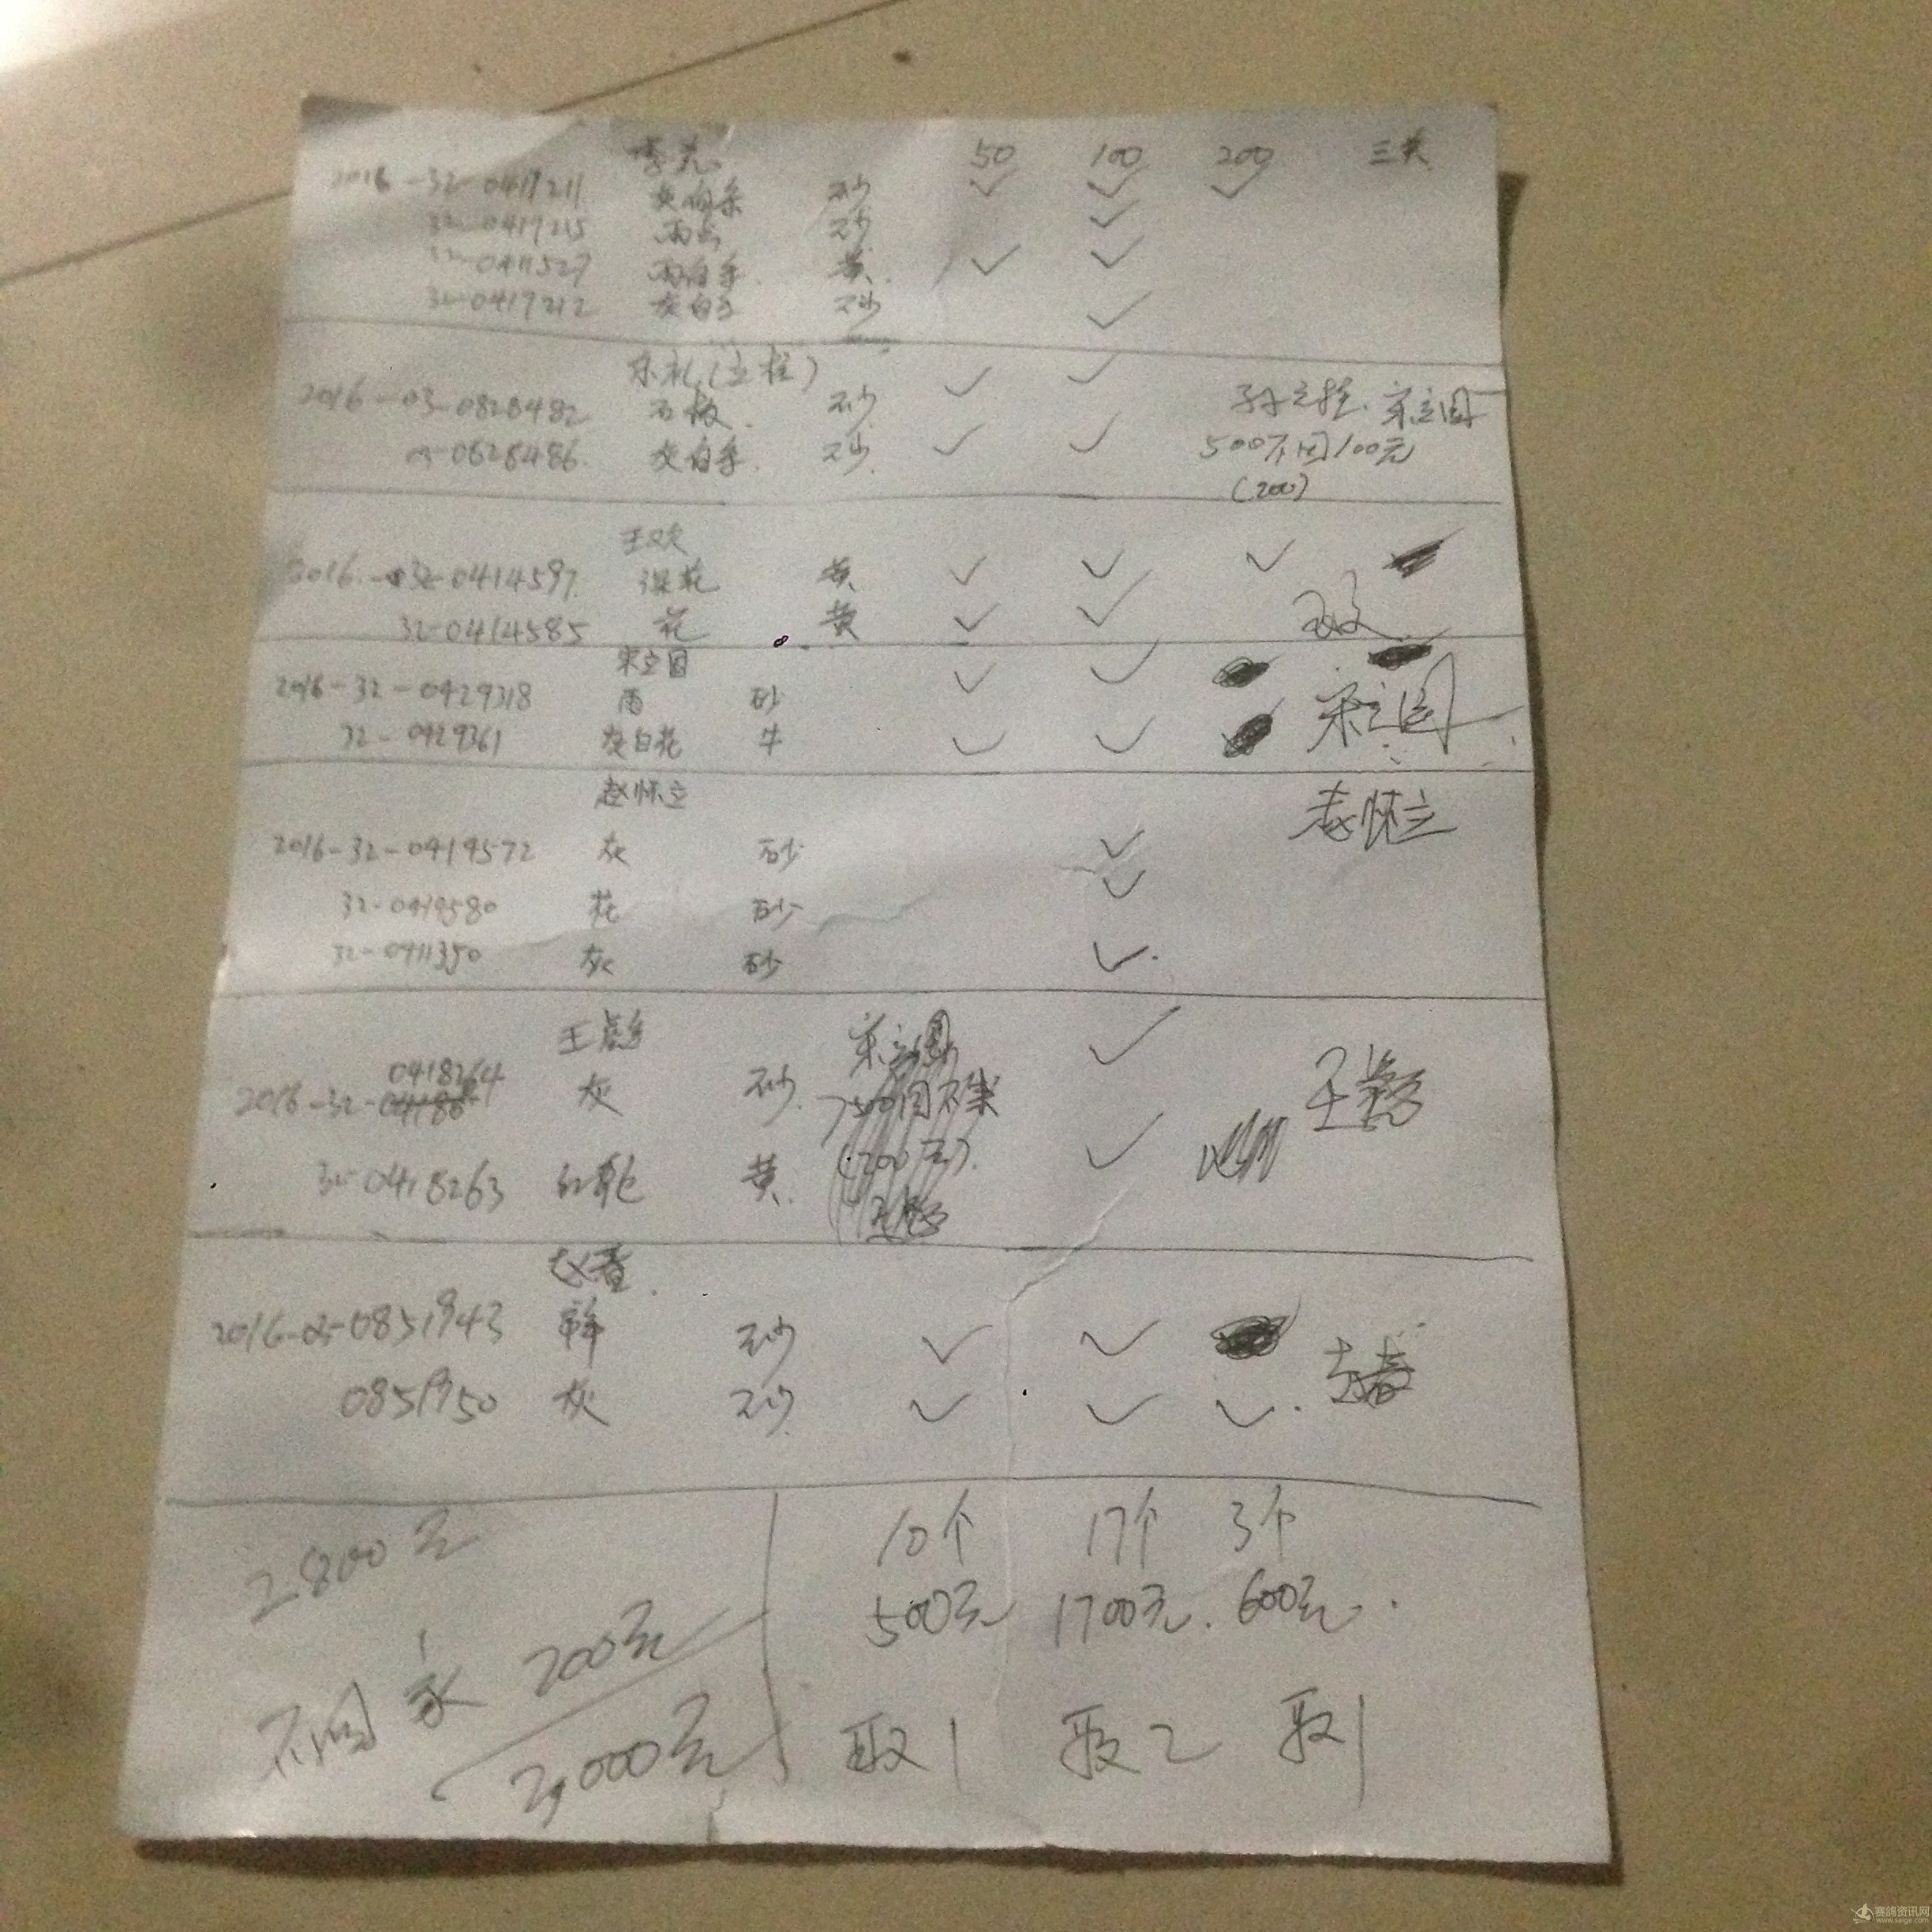 李亮 50 100 200 三关
2016-32-0417211 灰白条 砂 ✓ ✓ ✓
32-0417215 雨点 砂 ✓
32-0411527 雨白条 黄 ✓ ✓
32-0417212 灰白条 砂 ✓
乐礼(立柱) ✓ ✓
2016-03-0828482 石板 砂 孙立柱 宋立国
03-0828486 灰白条 砂 ✓ ✓ 500不回100元
(200)
王欢 ✓ ✓ ✓
2016-32-0414597 深花 黄
32-0414585 花 黄 ✓ ✓
宋立国 ✓ ✓
2016-32-0429318 雨 砂 宋立国
32-0429361 灰白花 牛 ✓ ✓
赵怀立 赵怀立
2016-32-0419572 灰 砂 ✓
32-0419580 花 砂 ✓
32-0411350 灰 砂 ✓
宋立国 ✓
0418264
2016-32- 灰 砂
32-0418263 红轮 黄 (200元) ✓
赵春
2016-03-0851943 砂 ✓ ✓ 赵春
0851950 灰 砂 ✓ ✓ ✓
10个 17个 3个
2800元
500元 1700元 600元
不回 1家 200元
3,000元 取1 取2 取1
赛鸽资讯网
www.saige.com